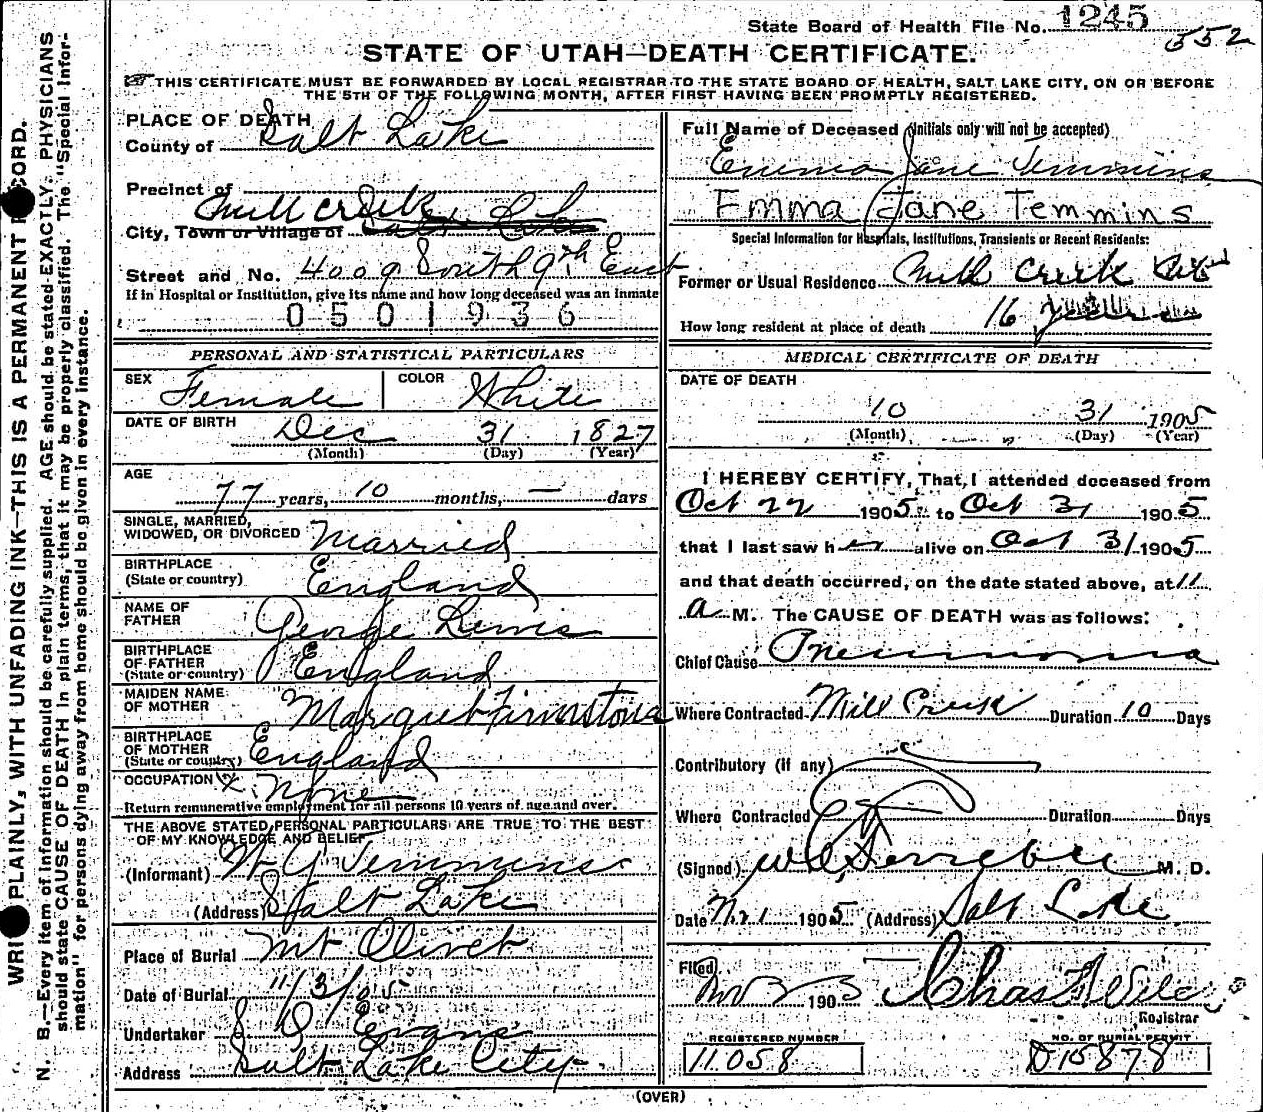 State Board of Health File No. 1245
552
STATE OF UTAH—DEATH CERTIFICATE.
THIS CERTIFICATE MUST BE FORWARDED BY LOCAL REGISTRAR TO THE STATE BOARD OF HEALTH, SALT LAKE CITY, ON OR BEFORE
THE 5TH OF THE FOLLOWING MONTH, AFTER FIRST HAVING BEEN PROMPTLY REGISTERED.
WRITE PLAINLY, WITH UNFADING INK—THIS IS A PERMANENT RECORD.
N. B.—Every item of information should be carefully supplied. AGE should be stated EXACTLY. PHYSICIANS
should state CAUSE OF DEATH in plain terms, that it may be properly classified. The "Special Infor-
mation" for persons dying away from home should be given in every instance.
PLACE OF DEATH
County of Salt Lake
Precinct of
Mill Creek
City, Town or Village of Salt Lake
Street and No. 4009 South 9th East
If in Hospital or Institution, give its name and how long deceased was an inmate
0501936
PERSONAL AND STATISTICAL PARTICULARS
SEX Female COLOR White
DATE OF BIRTH Dec 31 1827
(Month) (Day) (Year)
AGE
77 years, 10 months, — days
SINGLE, MARRIED,
WIDOWED, OR DIVORCED Married
BIRTHPLACE
(State or country) England
NAME OF
FATHER George Lewis
BIRTHPLACE
OF FATHER
(State or country) England
MAIDEN NAME
OF MOTHER Margret Firmstone
BIRTHPLACE
OF MOTHER
(State or country) England
OCCUPATION None
Return remunerative employment for all persons 10 years of age and over.
THE ABOVE STATED PERSONAL PARTICULARS ARE TRUE TO THE BEST
OF MY KNOWLEDGE AND BELIEF
(Informant) Temmins
(Address) Salt Lake
Place of Burial Mt Olivet
Date of Burial 11/3/05
Undertaker S D Evans
Address Salt Lake City
Full Name of Deceased (Initials only will not be accepted)
Emma Jane Temmins
Emma Jane Temmins
Special Information for Hospitals, Institutions, Transients or Recent Residents:
Former or Usual Residence Mill Creek
How long resident at place of death 16
MEDICAL CERTIFICATE OF DEATH
DATE OF DEATH
10 31 1905
(Month) (Day) (Year)
I HEREBY CERTIFY, That I attended deceased from
Oct 22 1905 to Oct 31 1905
that I last saw her alive on Oct 31 1905
and that death occurred, on the date stated above, at 11
a M. The CAUSE OF DEATH was as follows:
Chief Cause Pneumonia
Where Contracted Mill Creek Duration 10 Days
Contributory (if any)
Where Contracted Duration Days
(Signed) M. D.
Date Nov 1 1905 (Address) Salt Lake
Filed Nov 3 1905 Chas
Registrar
REGISTERED NUMBER
11058
NO. OF BURIAL PERMIT
D15878
(OVER)